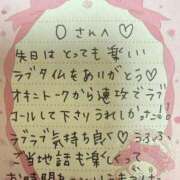 Oさんへ♡
先日はとっても楽しい
ラブタイムをありがとう♡
オキニトークから速攻でラブ
コールして下さりうれしかったよ!
ラブラブ気持ち良く♡うふふ
ご当地話も楽しくって
お時間も